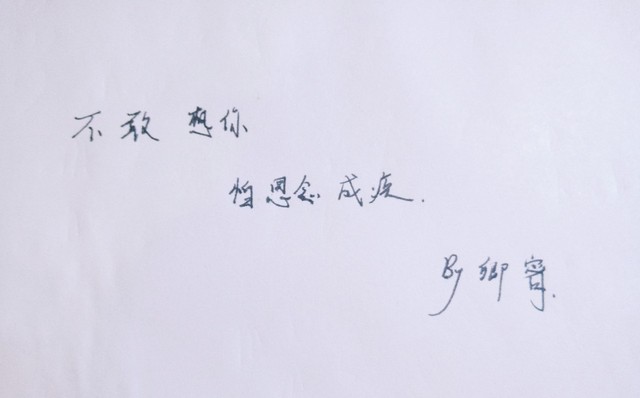 不敢想你
怕思念成疾.
By 卿甯.